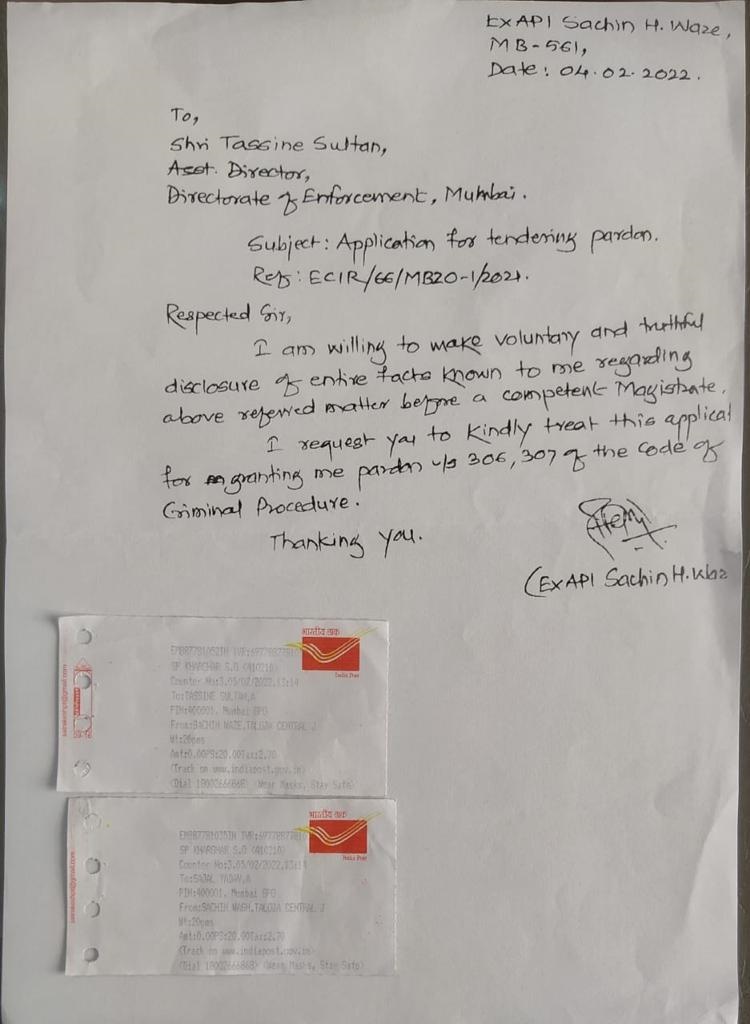 Ex API Sachin H. Waze,
MB-561,
Date: 04.02.2022.
To,
Shri Tassine Sultan,
Asst. Director,
Directorate of Enforcement, Mumbai.
Subject: Application for tendering pardon.
Ref: ECIR/66/MBZO-1/2021.
Respected Sir,
I am willing to make voluntary and truthful
disclosure of entire facts known to me regarding
above referred matter before a competent Magistrate.
I request you to kindly treat this applicat
for granting me pardon u/s 306, 307 of the Code of
Criminal Procedure.
Thanking you.
(Ex API Sachin H. Waz
भारतीय डाक
India Post
SP KHARGHAR S.O (410210)
Counter No:3,05/02/2022,13:14
To:TASSINE SULTAN,A
PIN:400001, Mumbai GPO
From:SACHIN WAZE,TALOJA CENTRAL J
Wt:20gms
Amt:0.00PS:20.00Tax:2.70
(Track on www.indiapost.gov.in)
(Dial 18002666868) (Wear Masks, Stay Safe)
भारतीय डाक
India Post
SP KHARGHAR S.O (410210)
Counter No:3,05/02/2022,13:14
To:SAJAL YADAV,A
PIN:400001, Mumbai GPO
From:SACHIN WASH,TALOJA CENTRAL J
Wt:20gms
Amt:0.00PS:20.00Tax:2.70
(Track on www.indiapost.gov.in)
(Dial 18002666868) (Wear Masks, Stay Safe)